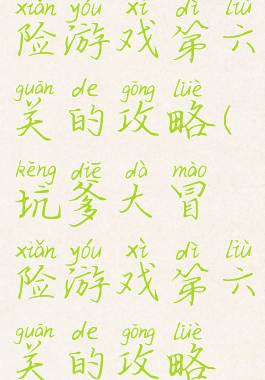 xiǎn yóu xì dì liù
险游戏第六
guān de gōng lüè
关的攻略(
kēng diē dà mào
坑爹大冒
xiǎn yóu xì dì liù
险游戏第六
guān de gōng lüè
关的攻略